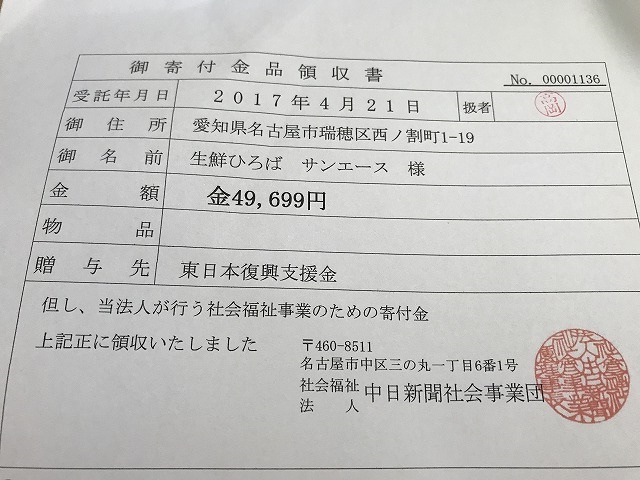 御寄付金品領収書
No. 00001136
受託年月日 2017年4月21日 扱者 高岡
御住所 愛知県名古屋市瑞穂区西ノ割町1-19
御名前 生鮮ひろば サンエース 様
金額 金49,699円
物品
贈与先 東日本復興支援金
但し、当法人が行う社会福祉事業のための寄付金
上記正に領収いたしました
〒460-8511
名古屋市中区三の丸一丁目6番1号
社会福祉法人 中日新聞社会事業団